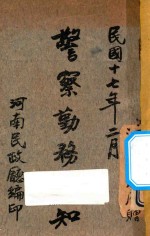 民國十七年二月
警察勤務
知
河南民政廳編印